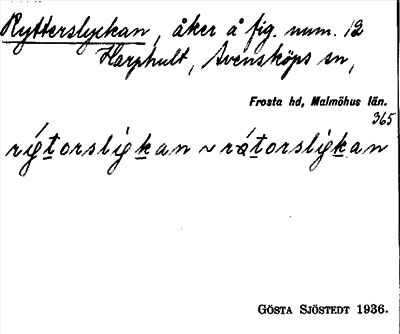 Rytterslyckan, åker å fig. num. 12
Harphult, Svensköps sn,
Frosta hd, Malmöhus län.
365
rígtorsligkan ~ rátorsligkan
GÖSTA SJÖSTEDT 1936.